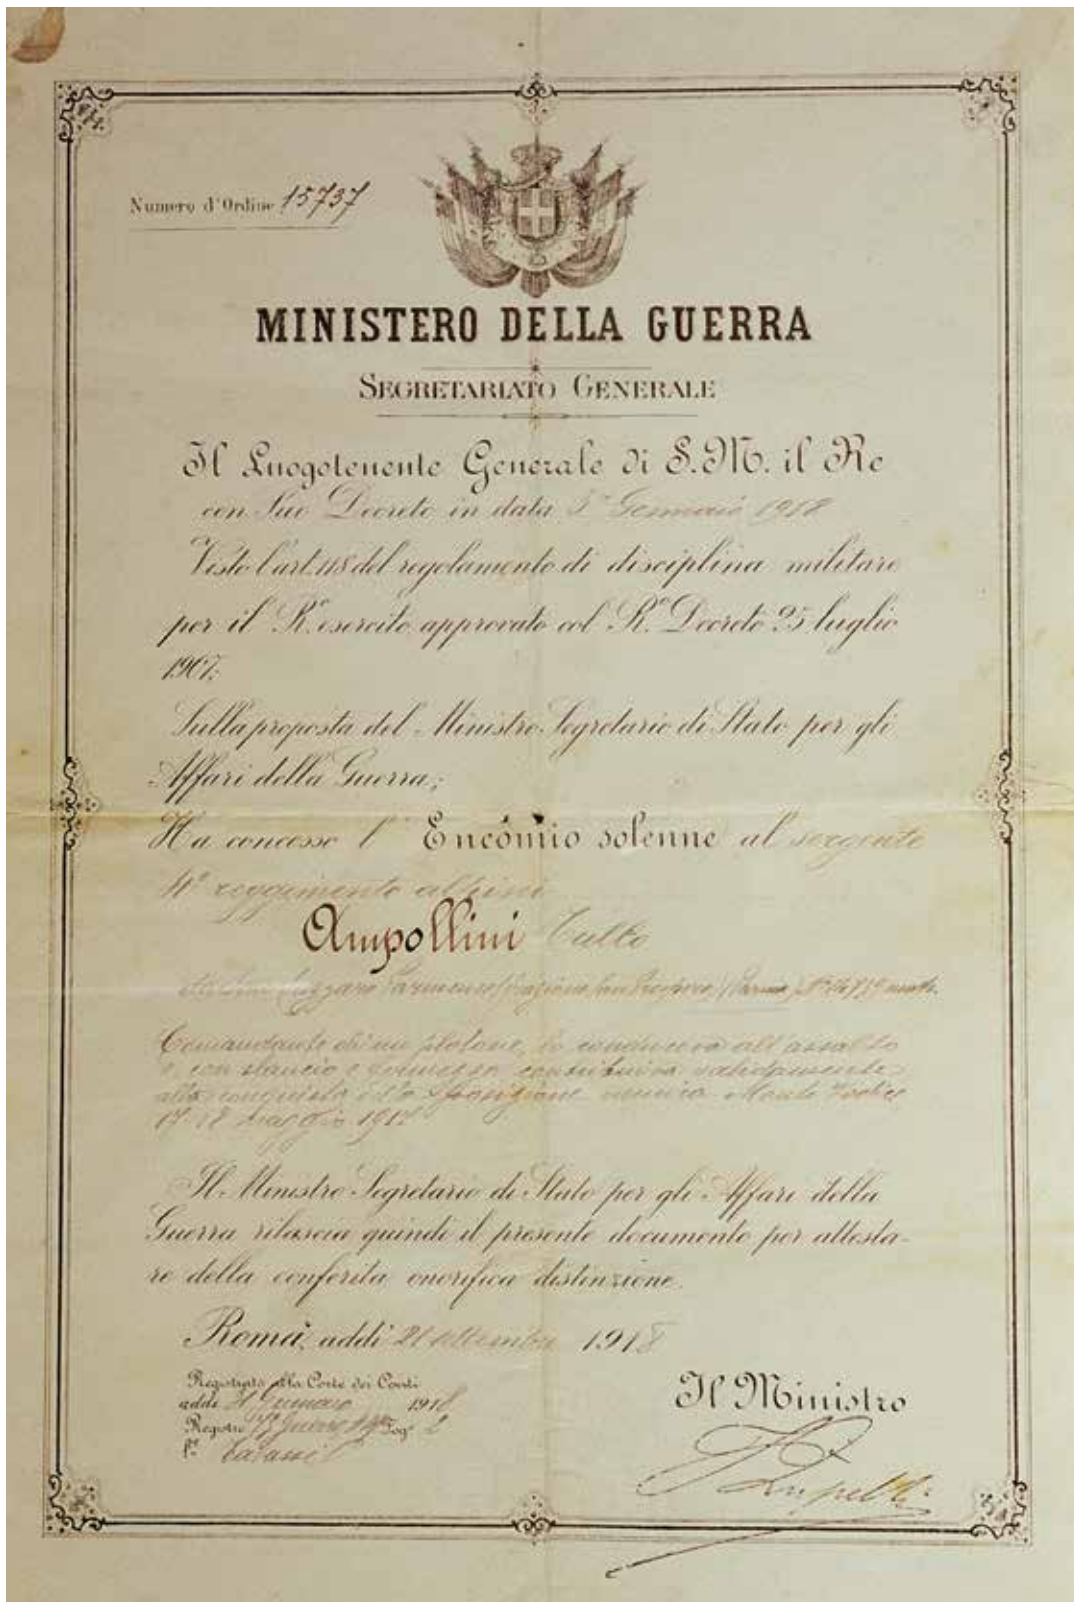 Numero d'Ordine 15737
MINISTERO DELLA GUERRA
SEGRETARIATO GENERALE
Il Luogotenente Generale di S. M. il Re
con Suo Decreto in data Gennaio 1918
Visto l'art. 118 del regolamento di disciplina militare
per il R.º esercito approvato col R.º Decreto 25 luglio
1907;
Sulla proposta del Ministro Segretario di Stato per gli
Affari della Guerra;
Ha concesso l' Encomio solenne al sergente
4º reggimento alpini
Ampollini Tullo
Parmense San Prospero (Parma)
Comandante di un plotone, lo conduceva all'assalto
e, con slancio e fermezza, contribuiva validamente
alla conquista della posizione nemica Monte Vodice
17-18 maggio 1917
Il Ministro Segretario di Stato per gli Affari della
Guerra rilascia quindi il presente documento per attesta-
re della conferita onorifica distinzione.
Roma, addì 21 settembre 1918
Registrato alla Corte dei Conti
addì Gennaio 1918
Registro Guerra Fog.º 2
Il Ministro